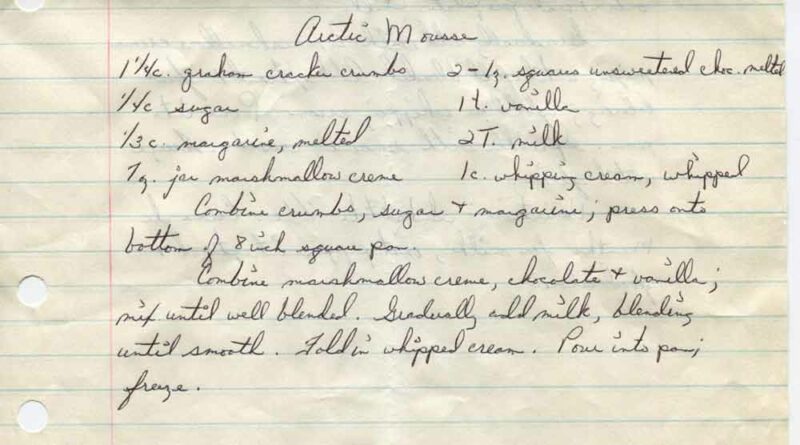 Arctic Mousse
1 1/4c. graham cracker crumbs 2-1oz. squares unsweetened choc. melted
1/4c sugar 1 t. vanilla
1/3 c. margarine, melted 2T. milk
7oz. jar marshmallow creme 1c. whipping cream, whipped
Combine crumbs, sugar + margarine; press onto
bottom of 8 inch square pan.
Combine marshmallow creme, chocolate + vanilla;
mix until well blended. Gradually add milk, blending
until smooth. Fold in whipped cream. Pour into pan;
freeze.